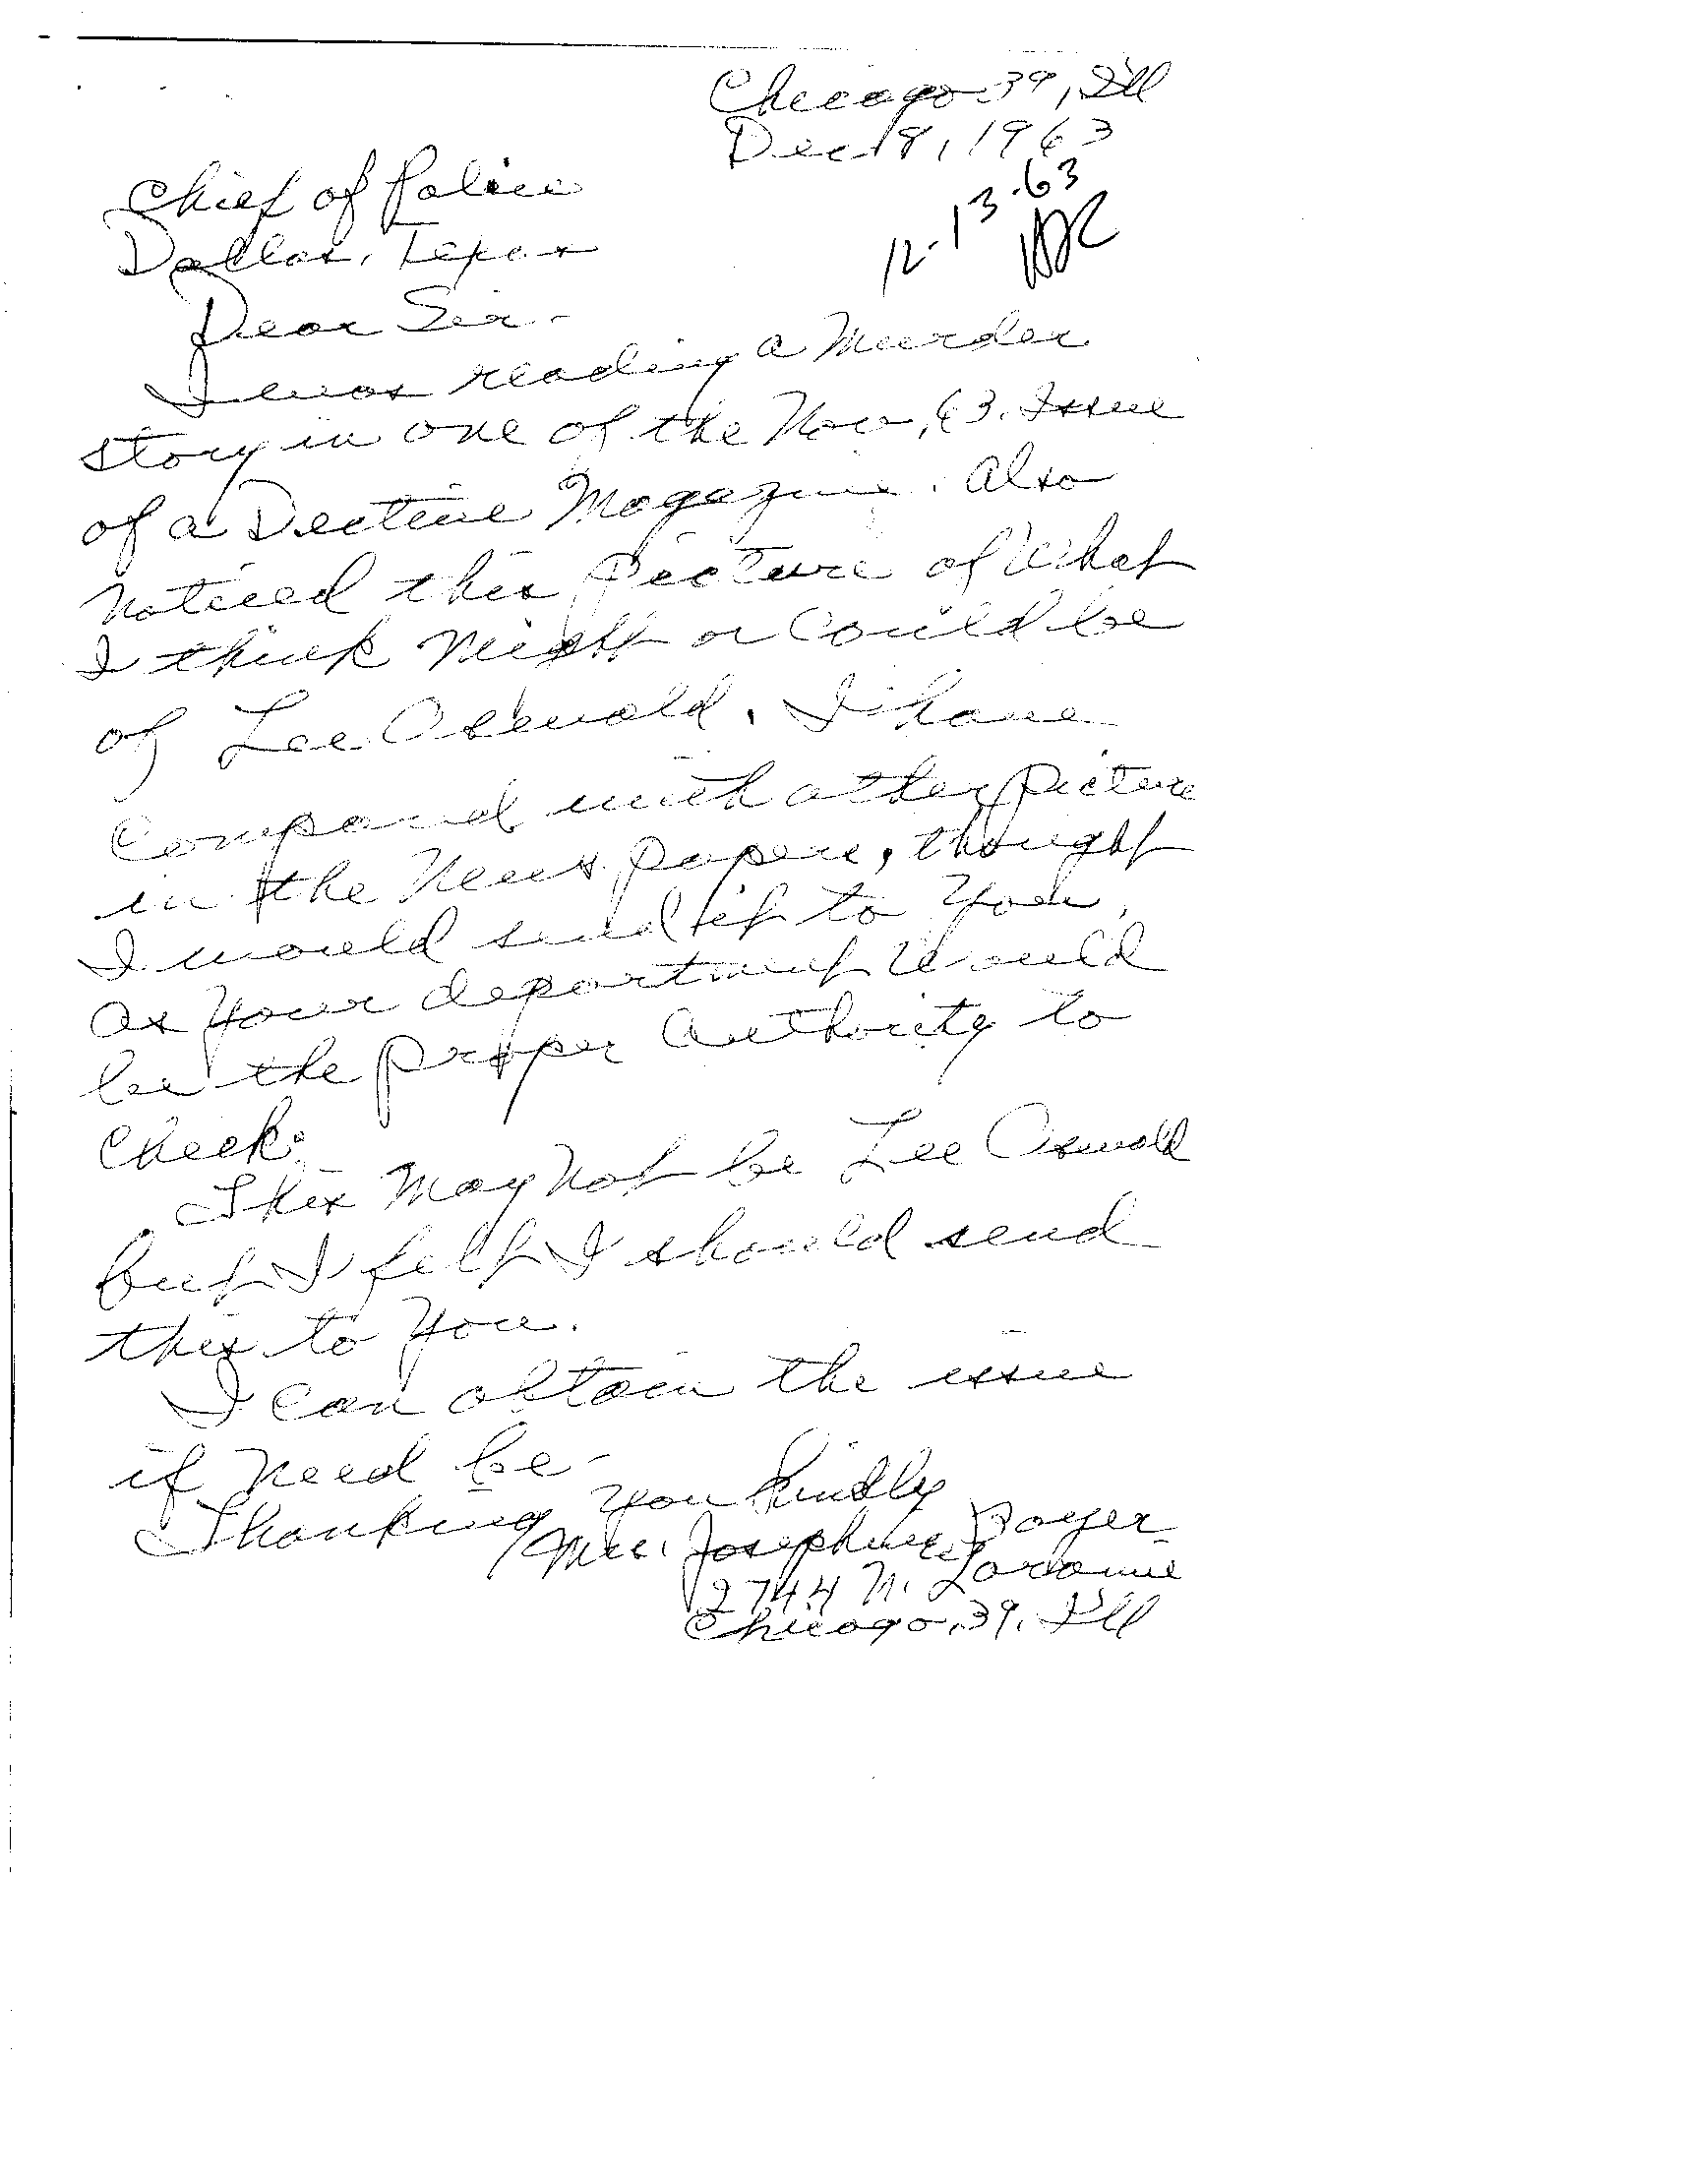 Chicago 39, Ill
Dec 8, 1963
12-13-63
Chief of Police
Dallas, Texas
Dear Sir-
I was reading a Murder
story in one of the Nov, 63. Issue
of a Dective Magazine. Also
noticed this Picture of What
I think Might or Could be
of Lee Oswald. I have
Compared with other picture
in the News papers, thought
I would send it to You,
as Your department Would
be the proper Authority to
Check.
This May Not be Lee Oswald
but I felt I should send
this to You.
I Can obtain the issue
if need be-
Thanking you kindly
Mrs. Josephine
2744 N. Laramie
Chicago, 39, Ill